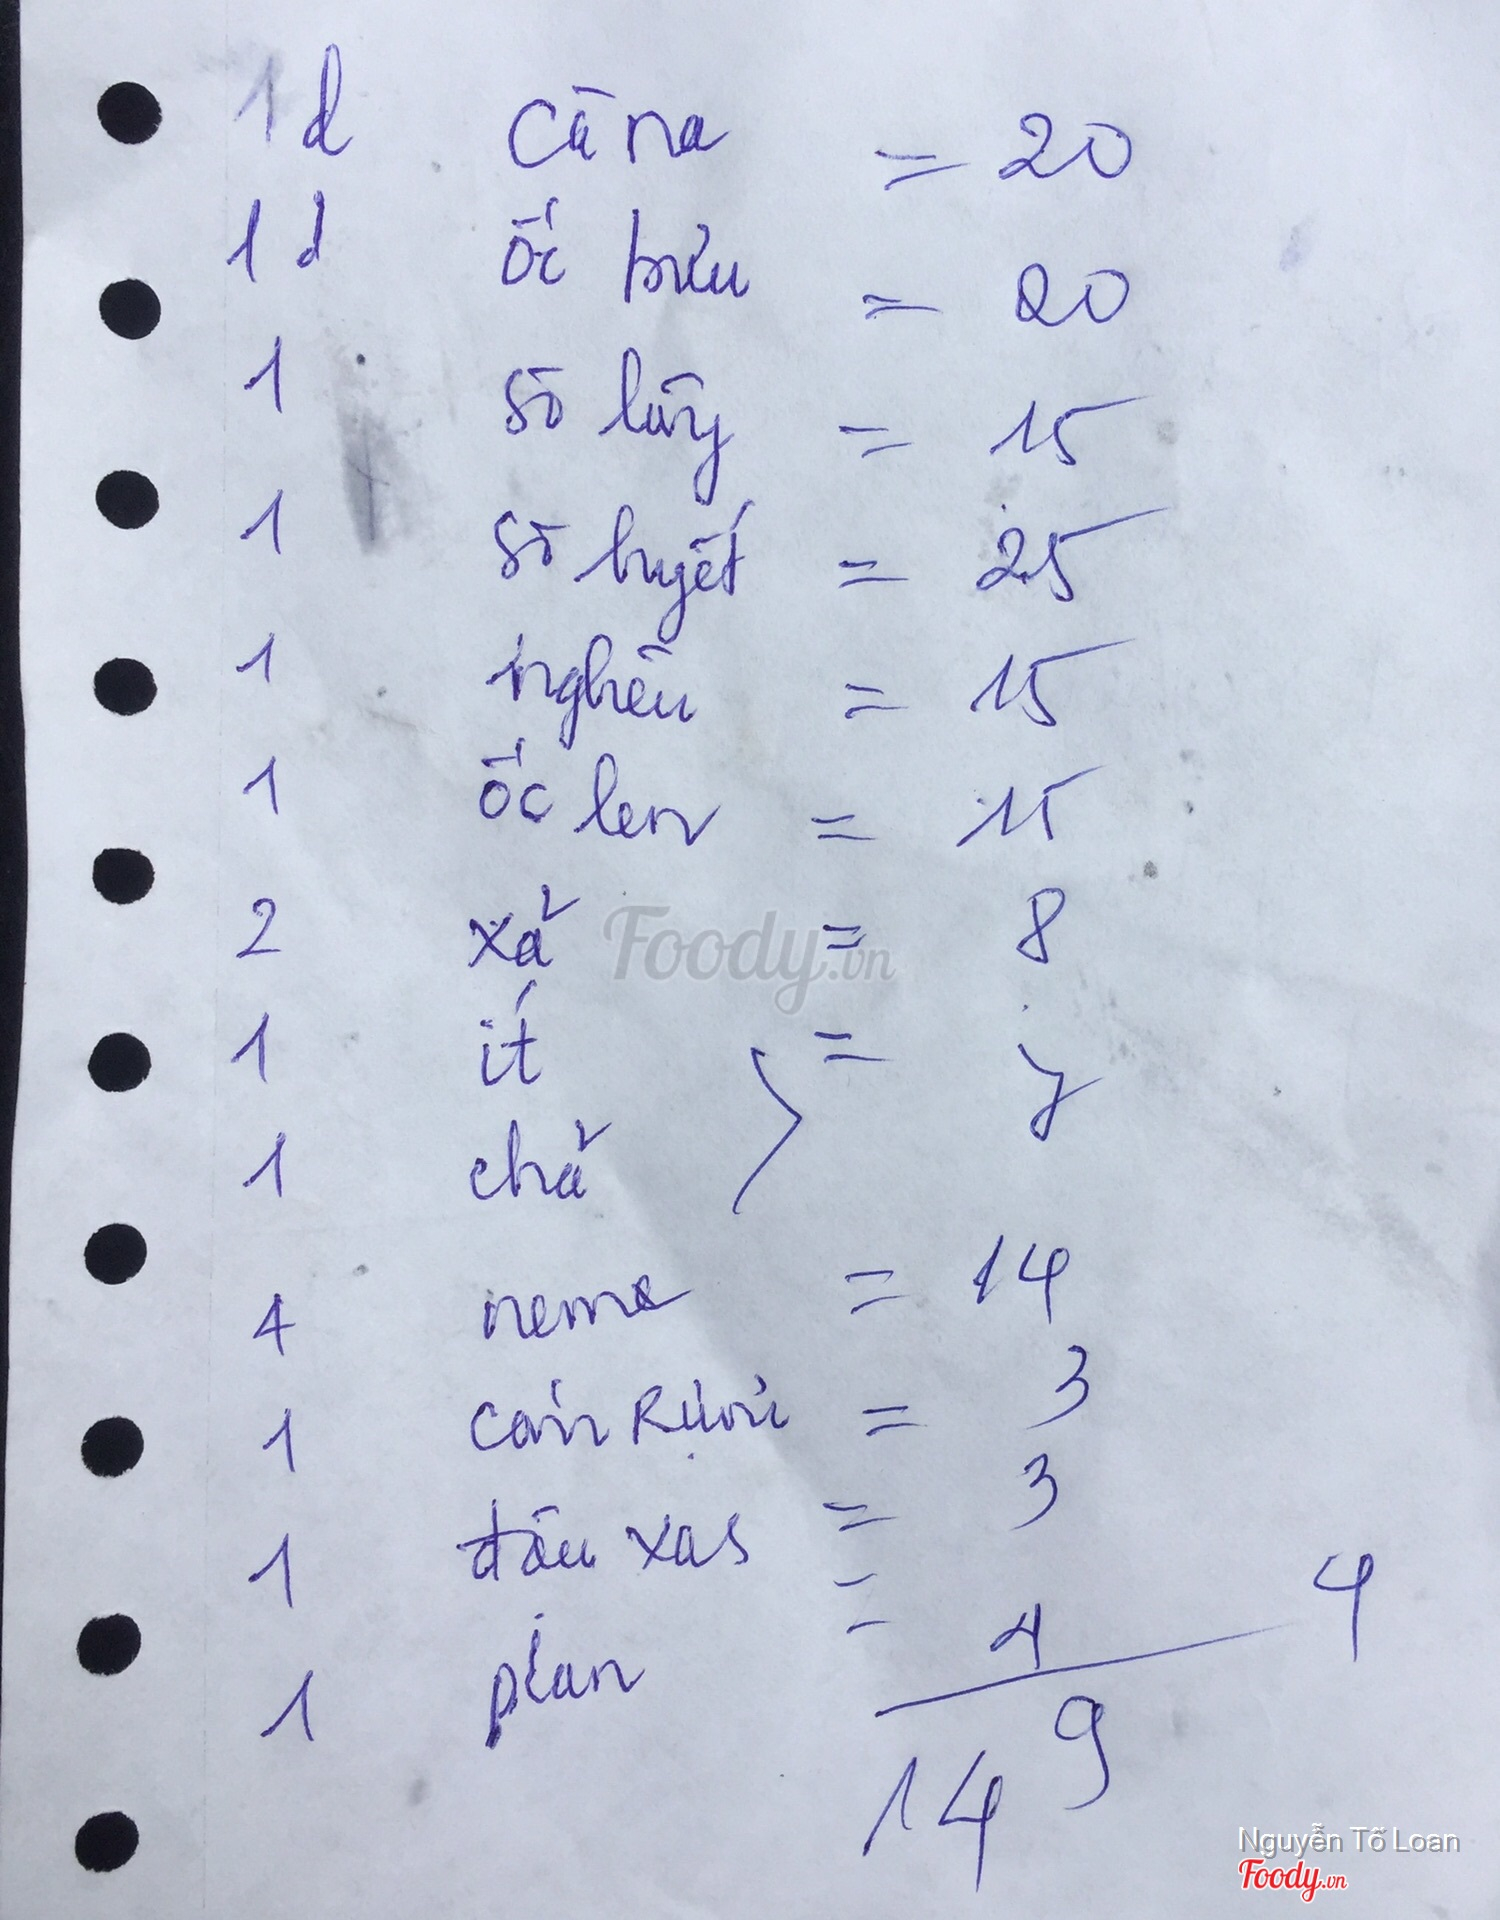 1 d cà na = 20
1 d ốc bưu = 20
1 sò lông = 15
1 sò huyết = 25
1 nghêu = 15
1 ốc len = 15
2 xả = 8
1 ít = 7
1 chả
4 nem = 14
1 Rượu = 3
1 đâu = 3
1 = 4 4
149
Foody.vn
Nguyễn Tố Loan
Foody.vn